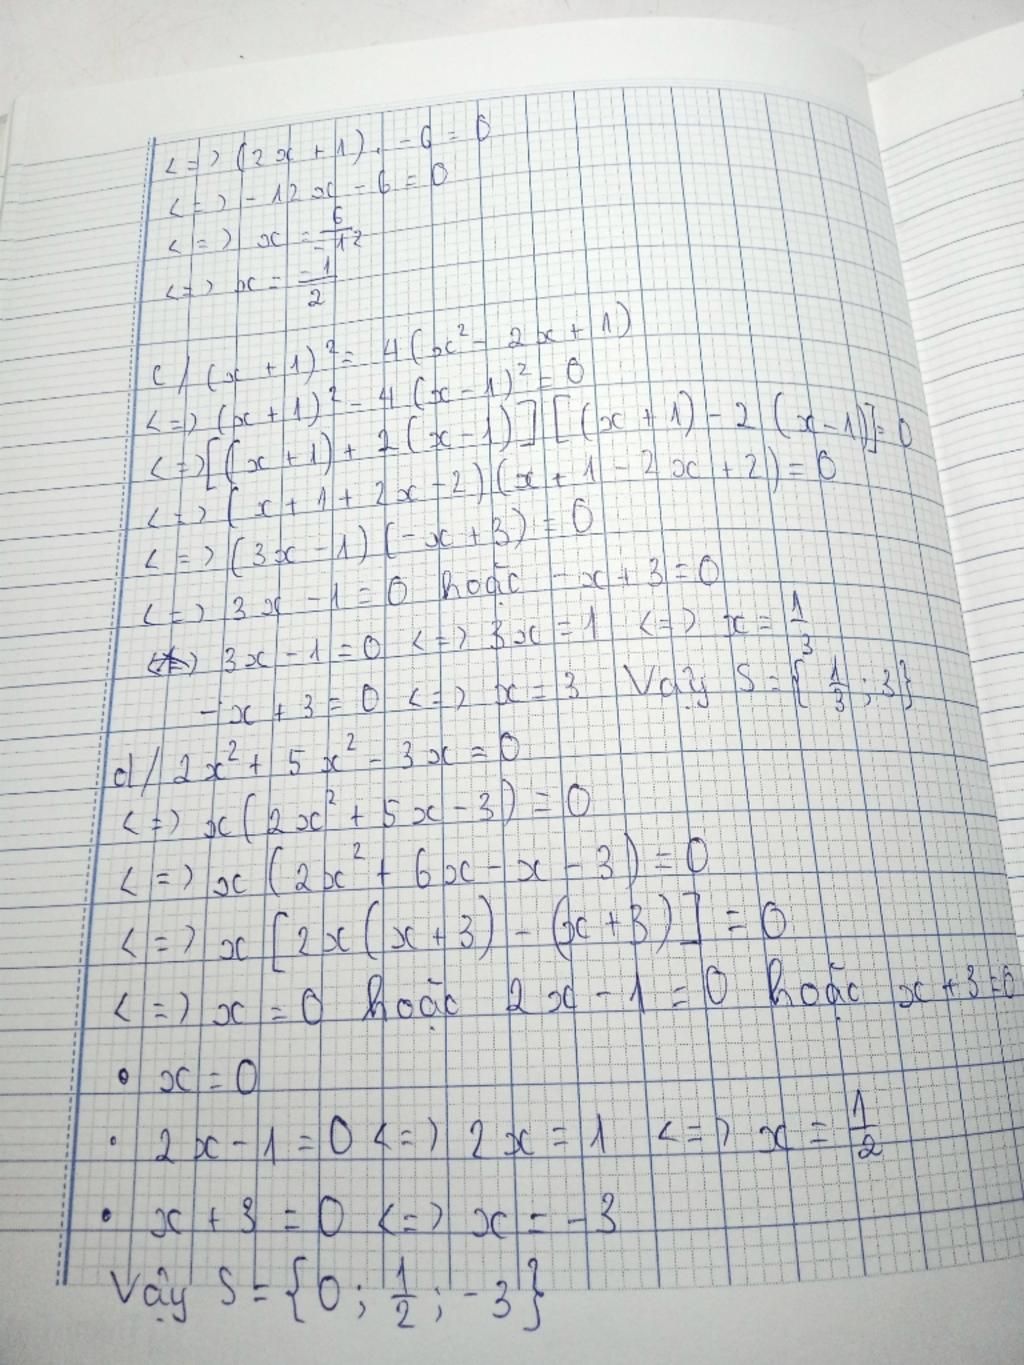 <=> (2x + 1). -6 = 0
<=> -12x - 6 = 0
<=> x = 6/-12
<=> x = -1/2
c/ (x + 1)² = 4(x² - 2x + 1)
<=> (x + 1)² - 4(x - 1)² = 0
<=> [(x + 1) + 2(x - 1)] [(x + 1) - 2(x - 1)] = 0
<=> (x + 1 + 2x - 2)(x + 1 - 2x + 2) = 0
<=> (3x - 1)(-x + 3) = 0
<=> 3x - 1 = 0 hoặc -x + 3 = 0
3x - 1 = 0 <=> 3x = 1 <=> x = 1/3
-x + 3 = 0 <=> x = 3 Vậy S = {1/3; 3}
d/ 2x² + 5x² - 3x = 0
<=> x(2x² + 5x - 3) = 0
<=> x(2x² + 6x - x - 3) = 0
<=> x[2x(x + 3) - (x + 3)] = 0
<=> x = 0 hoặc 2x - 1 = 0 hoặc x + 3 = 0
• x = 0
• 2x - 1 = 0 <=> 2x = 1 <=> x = 1/2
• x + 3 = 0 <=> x = -3
Vậy S = {0; 1/2; -3}